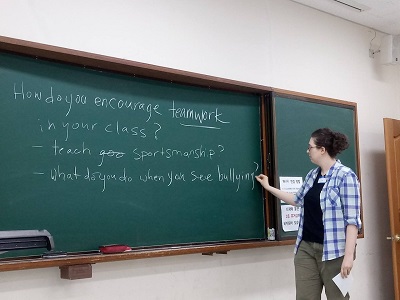 How do you encourage teamwork
in your class?
- teach goo sportsmanship?
- what do you do when you see bullying?